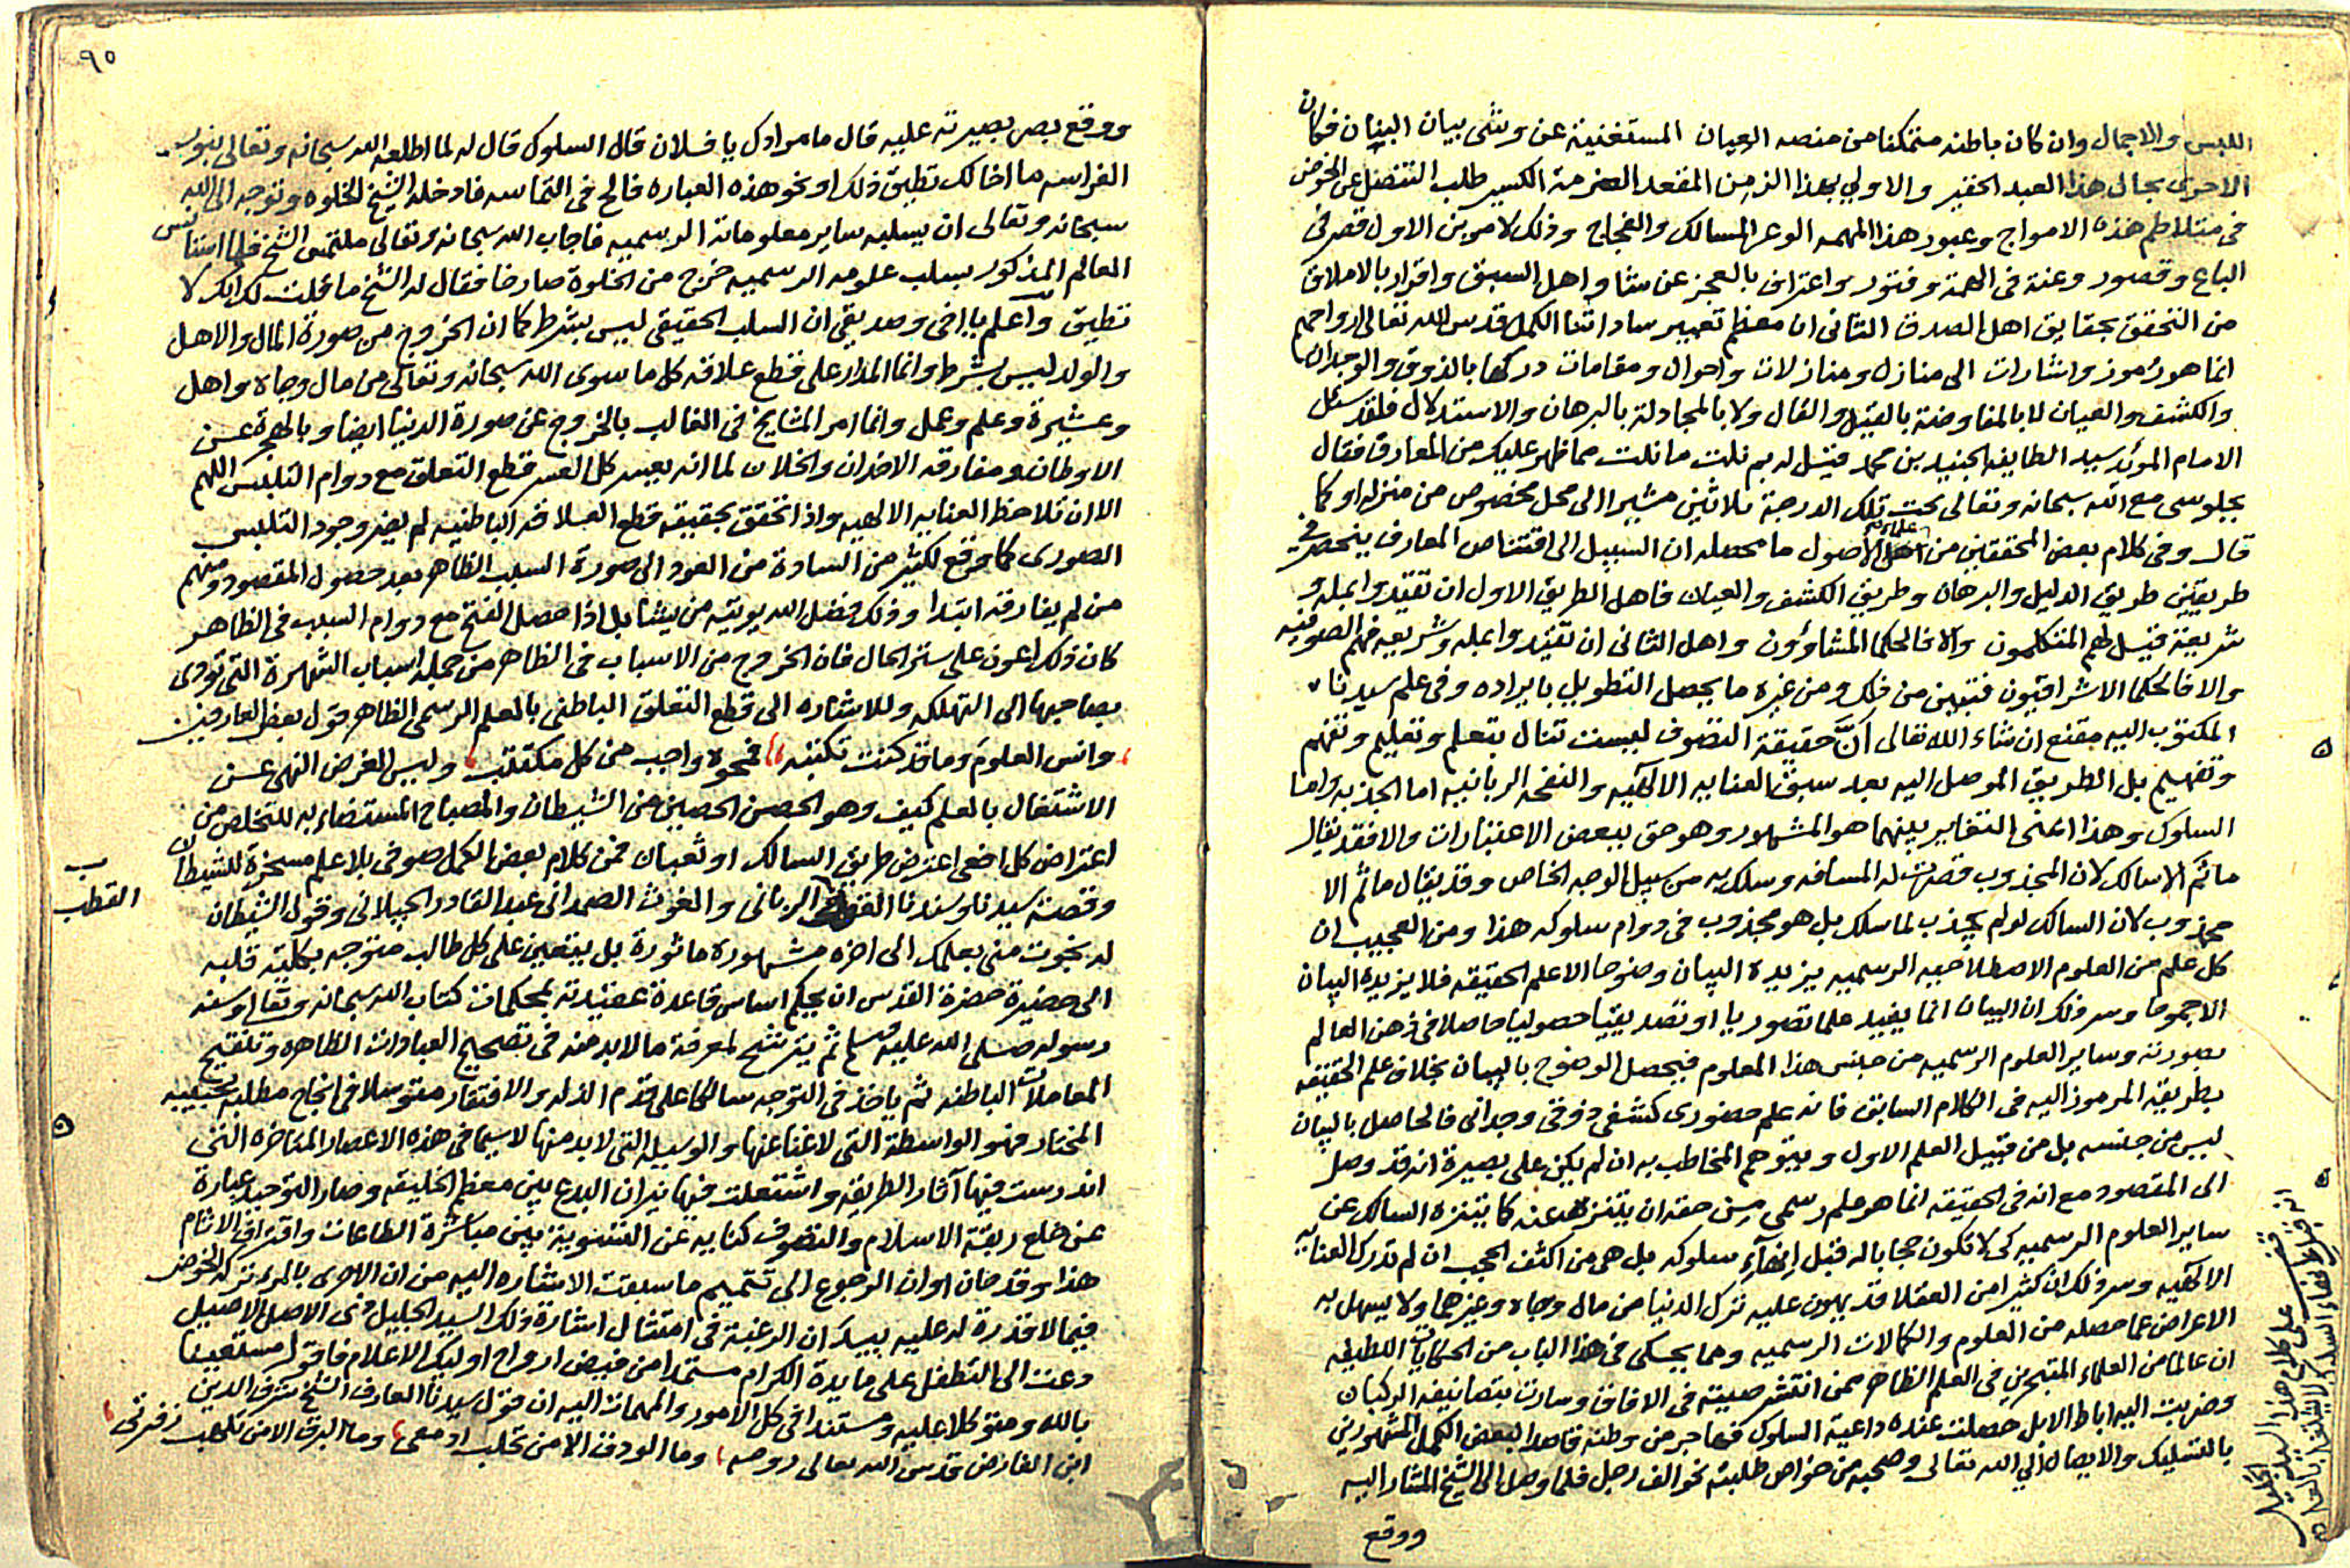 اللبس والاجمال وان كان باطنه متمكنا من منصه العيان المستغنية عن وشي بيان البنان فكان
الاحرى بحال هذا العبد الحقير والاولى بهذا الزمن المقعد الكسير طلب التنصل عن الخوض
فى متلاطم هذه الامواج وعبور هذا المهمه الوعر المسالك والفجاج وذلك لامرين الاول قصر فى
الباع وقصور وعنة فى الهمة وفتور واعتراف بالعجز عن شاو اهل السبق واقرار بالاملاق
من التحقق بحقايق اهل الصدق الثانى ان معظم تعبير ساداتنا الكمل قدس الله تعالى ارواحهم
انما هو رموز واشارات الى منازل ومنازلات واحوال ومقامات دركها بالذوق والوجدان
والكشف والعيان لا بالمفاوضة بالقيل والقال ولا بالمجادلة بالبرهان والاستدلال فلقد سئل
الامام المؤيد سيد الطايفه الجنيد بن محمد فقيل له بم نلت ما نلت مما ظهر عليك من المعارف فقال
بجلوسى مع الله سبحانه وتعالى تحت تلك الدرجة ثلاثين مشيرا الى محل مخصوص من منزله او كما
قال وفى كلام بعض المحققين من علماء الاصول ما محصله ان السبيل الى اقتناص المعارف ينحصر فى
طريقين طريق الدليل والبرهان وطريق الكشف والعيان فاهل الطريق الاول ان تقيدوا بمله و
شريعة فقيل لهم المتكلمون والا فالحكما المشاؤون واهل الثانى ان تقيدوا بمله وشريعه فهم الصوفيه
والا فالحكما الاشراقيون فتبين من ذلك ومن غيره ما يحصل التطويل بايراده وفى علم سيدنا
المكتوب اليه مقنع ان شاء الله تعالى انّ حقيقة التصوف ليست تنال بتعلم وتعليم وتفهم
وتفهيم بل الطريق الموصل اليه بعد سبق العنايه الالهيه والنفحه الربانيه اما الجذبه واما
السلوك وهذا اعنى التغاير بينهما هو المشهور وهو حق ببعض الاعتبارات والا فقد يقال
ما ثم الا سالك لان المجذوب قصرت له المسافه وسلك به من سبيل الوجه الخاص وقد يقال ما ثم الا
مجذوب لان السالك لو لم يجذب لما سلك بل هو مجذوب فى دوام سلوكه هذا ومن العجيب ان
كل علم من العلوم الاصطلاحيه الرسميه يزيده البيان وضوحا الا علم الحقيقه فلا يزيده البيان
الا جموحا وسر ذلك ان البيان انما يفيد علما تصوريا او تصديقيا حصوليا حاصلا فى ذهن العالم
بصورته وساير العلوم الرسميه من جنس هذا المعلوم فيحصل الوضوح بالبيان بخلاف علم الحقيقه
بطريقه المرموز اليه فى الكلام السابق فانه علم حضورى كشفى ذوقى وجدانى فالحاصل بالبيان
ليس من جنسه بل من قبيل العلم الاول ويتوهم المخاطب به ان لم يكن على بصيرة انه قد وصل
الى المقصود مع انه فى الحقيقه انما هو علم رسمى من حقه ان يتنزه عنه كما يتنزه السالك عن
ساير العلوم الرسميه كى لا تكون حجابا له قبل انهاء سلوكه بل هى من اكثف الحجب ان لم تدرك العنايه
الالهيه وسر ذلك ان كثيرا من العقلا قد يهون عليه ترك الدنيا من مال وجاه وغيرهما ولا يسهل به
الاعراض عما حصله من العلوم والكمالات الرسميه ومما يحكى فى هذا الباب من الحكايات اللطيفه
ان عالما من العلماء المتبحرين فى العلم الظاهر ممن انتشر صيته فى الافاق وسارت بتصانيفه الركبان
وضربت اليه اباط الابل حصلت عنده داعية السلوك فهاجر من وطنه قاصدا لبعض الكمل المشهورين
بالتسليك والايصال الى الله تعالى وصحبه من خواص طلبته نحو الف رجل فلما وصل الى الشيخ المشار اليه
ووقع
قف على كلام هذا السيد الجليل
٩٥
ووقع بصر بصيرته عليه قال ما مرادك يا فلان قال السلوك قال له لما اطلعه الله سبحانه وتعالى بنور
الفراسه ما اخالك تطيق ذلك او نحو هذه العباره فالح فى التماسه فادخله الشيخ الخلوه وتوجه الى الله
سبحانه وتعالى ان يسلبه ساير معلوماته الرسميه فاجاب الله سبحانه وتعالى ملتمس الشيخ فلما استانس
العالم المذكور بسلب علومه الرسميه خرج من الخلوة صارخا فقال له الشيخ ما قلت لك انك لا
تطيق واعلم يا اخى وصديقى ان السلب الحقيقى ليس بشرط كما ان الخروج من صورة المال والاهل
والولد ليس بشرط وانما المدار على قطع علاقه كل ما سوى الله سبحانه وتعالى من مال وجاه واهل
وعشيرة وعلم وعمل وانما امر المشايخ فى الغالب بالخروج عن صورة الدنيا ايضا وبالهجرة عن
الاوطان ومفارقه الاخدان والخلان لما انه يعسر كل العسر قطع التعلق مع دوام التلبس اللهم
الا ان تلاحظ العنايه الالهيه واذا تحقق بحقيقه قطع العلاقه الباطنيه لم يضر وجود التلبس
الصورى كما وقع لكثير من السادة من العود الى صورة السبب الظاهر بعد حصول المقصود ومنهم
من لم يفارقه ابتدا وذلك فضل الله يوتيه من يشا بل اذا حصل الفتح مع دوام السبب فى الظاهر
كان ذلك اعون على ستر الحال فان الخروج من الاسباب فى الظاهر من جمله اسباب الشهرة التى تودى
بصاحبها الى التهلكه وللاشاره الى قطع التعلق الباطنى بالعلم الرسمى الظاهر قول بعض العارفين
وانس العلوم وما قد كنت تكتبه فمحوه واجب من كل مكتتب وليس الغرض النهى عن
الاشتغال بالعلم كيف وهو الحصن الحصين من الشيطان والمصباح المستضاء به للتخلص من
اعتراض كل افعى اعترض طريق السالك او ثعبان فمن كلام بعض الكمل صوفى بلا علم مسخرة للشيطان
وقصة سيدنا وسندنا الربانى والغوث الصمدانى عبد القادر الجيلانى وقول الشيطان
القطب
له نجوت منى بعلمك الى اخره مشهورة ماثورة بل يتعين على كل طالب متوجه بكليه قلبه
الى حضيرة حضرة القدس ان يحكم اساس قاعدة عقيدته بمحكمات كتاب الله سبحانه وتعالى وسنه
رسوله صلى الله عليه وسلم ثم يترشح لمعرفة ما لا بد منه فى تصحيح العبادات الظاهره وتنقيح
المعاملات الباطنه ثم ياخذ فى التوجه سالكا على قدم الذله والافتقار متوسلا فى انجاح مطلبه بحبيبه
المختار فهو الواسطة التى لا غنا عنها والوسيله التى لا بد منها لا سيما فى هذه الاعصار المتاخره التى
اندرست فيها آثار الطريقه واشتعلت فيها نيران البدع بين معظم الخليقه وصار التوحيد عبارة
عن خلع ربقة الاسلام والتصوف كنايه عن التسوية بين مباشرة الطاعات واقتراف الاثام
هذا وقد حان اوان الرجوع الى تتميم ما سبقت الاشاره اليه من ان الاحرى بالمرء تركه الخوض
فيما لا قدرة له عليه بيد ان الرغبة فى امتثال اشارة ذلك السيد الجليل ذى الاصل الاصيل
دعت الى التطفل على مايدة الكرام مستمدا من فيض ارواح اوليك الاعلام فاقول مستعينا
بالله ومتوكلا عليه ومستندا فى كل الامور والمهمات اليه ان قول سيدنا العارف الشيخ شرف الدين
ابن الفارض قدس الله تعالى روحه وما الودق الا من تحلب ادمعى وما البرق الا من تلهب زفرتى